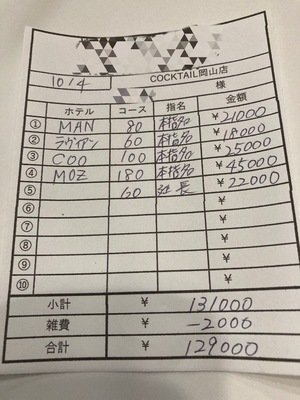 COCKTAIL岡山店
10/4 様
ホテル コース 指名 金額
① MAN 80 本指名 ¥21000
② ラヴィアン 60 本指名 ¥18000
③ COO 100 本指名 ¥25000
④ MOZ 180 本指名 ¥45000
⑤ 60 延長 ¥22000
⑥ ¥
⑦ ¥
⑧ ¥
⑨ ¥
⑩ ¥
小計 ¥ 131000
雑費 ¥ -2000
合計 ¥ 129000